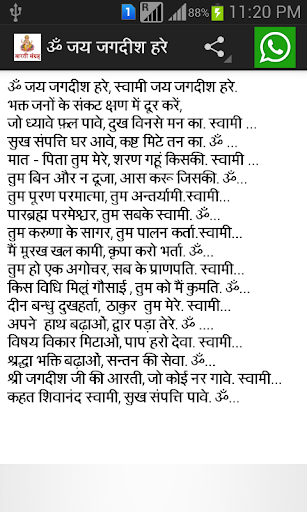 1 R 88% 11:20 PM
आरती संग्रह ॐ जय जगदीश हरे
ॐ जय जगदीश हरे, स्वामी जय जगदीश हरे.
भक्त जनों के संकट क्षण में दूर करें,
जो ध्यावे फ़ल पावे, दुख विनसे मन का. स्वामी ...
सुख संपत्ति घर आवे, कष्ट मिटे तन का. ॐ...
मात - पिता तुम मेरे, शरण गहूं किसकी. स्वामी ...
तुम बिन और न दूजा, आस करू जिसकी. ॐ...
तुम पूरण परमात्मा, तुम अन्तर्यामी.स्वामी...
पारब्रह्म परमेश्वर, तुम सबके स्वामी. ॐ...
तुम करुणा के सागर, तुम पालन कर्ता.स्वामी...
मैं मूरख खल कामी, कृपा करो भर्ता. ॐ...
तुम हो एक अगोचर, सब के प्राणपति. स्वामी...
किस विधि मिलूं गौसाई , तुम को मैं कुमति. ॐ...
दीन बन्धु दुखहर्ता, ठाकुर तुम मेरे. स्वामी...
अपने हाथ बढ़ाओ, द्वार पड़ा तेरे. ॐ ....
विषय विकार मिटाओ, पाप हरो देवा. स्वामी...
श्रद्धा भक्ति बढ़ाओ, सन्तन की सेवा. ॐ...
श्री जगदीश जी की आरती, जो कोई नर गावे. स्वामी...
कहत शिवानंद स्वामी, सुख संपत्ति पावे. ॐ...